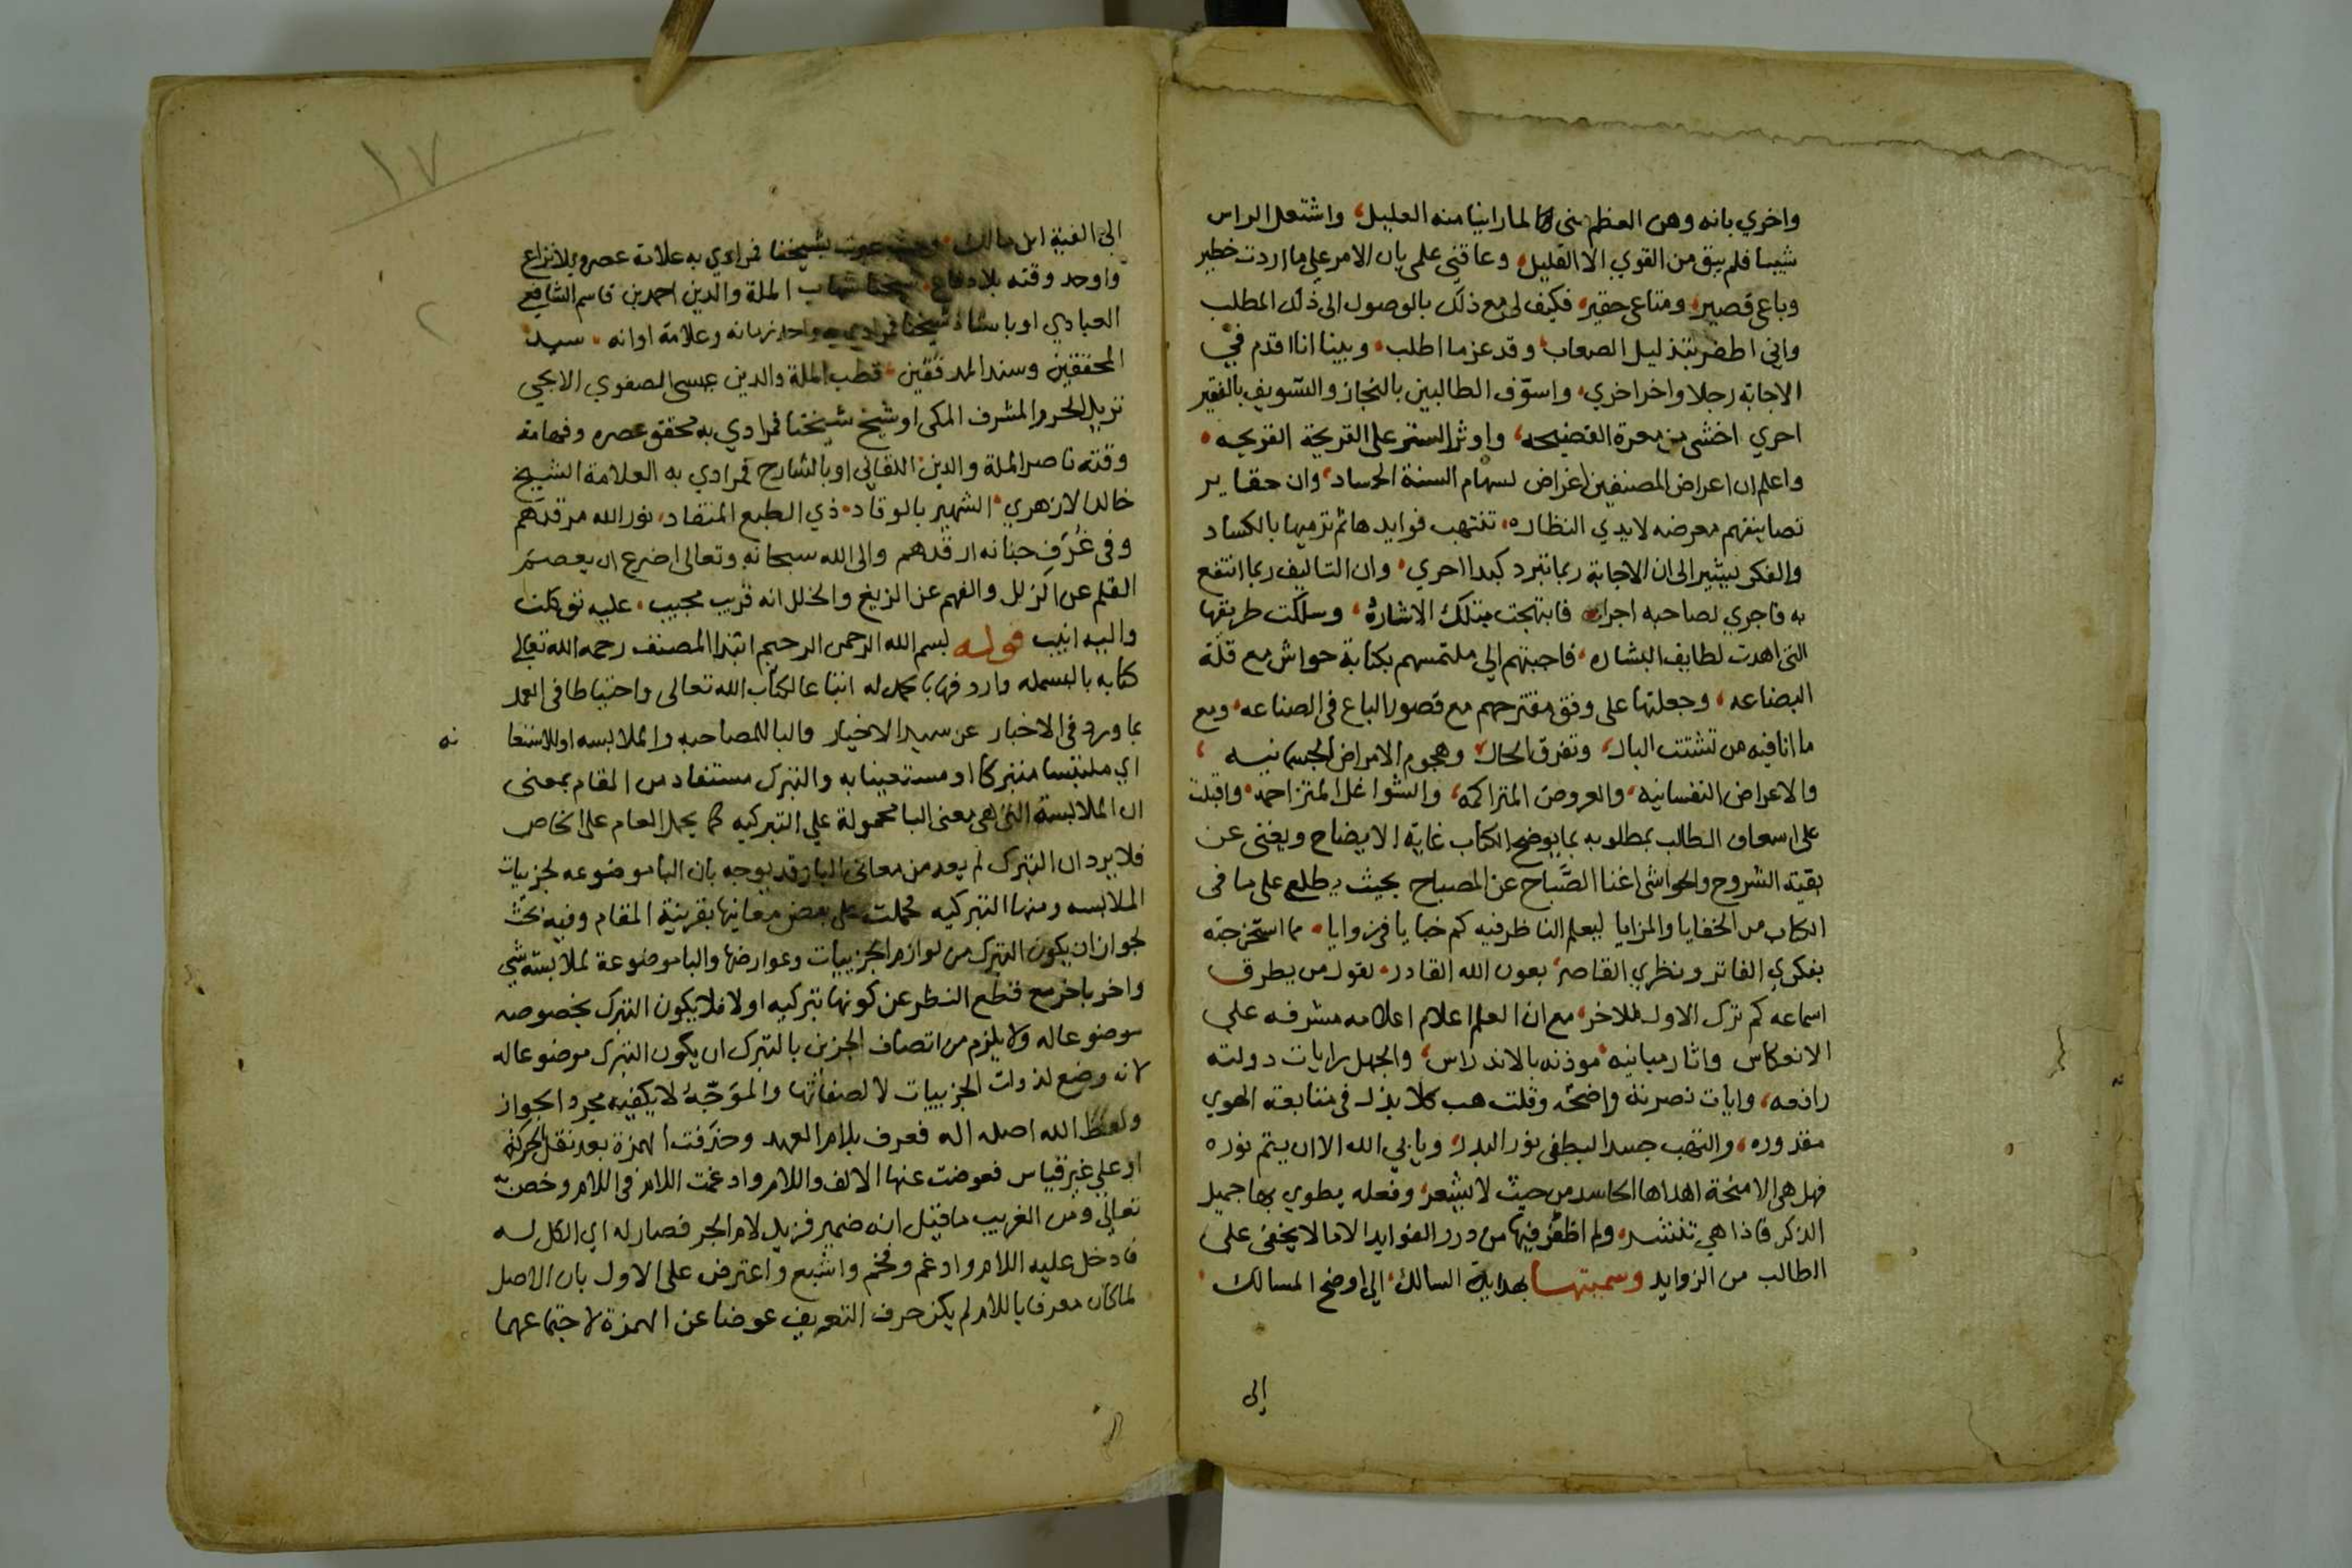 واخري بانه وهن العظم مني لما راينا منه العليل، واشتعل الراس
شيبا فلم يبق من القوي الا القليل، وعاقني علمي بان الامر علي ما اردت خطير
وباعي قصير، ومتاعي حقير، فكيف لي مع ذلك بالوصول الي ذلك المطلب
واني اظفر بتذليل الصعاب، وقد عز ما اطلب، وبينا انا اقدم في
الاجابة رجلا واخر اخري، واسوّف الطالبين بالنجاز والتسويف بالفقير
احري اخشي من معرة الفضيحه، واوثر الستر علي القريحة القريحه،
واعلم ان اعراض المصنفين اغراض لسهام السنة الحساد، وان حقاير
تصانيفهم معرضه لايدي النظاره، تنتهب فوايدها ثم ترميها بالكساد
والفكر يشير الي ان الاجابة ربما تبرد كبدا احري، وان التاليف ربما انتفع
به فاجري لصاحبه اجرا، فابتهجت بتلك الاشارة، وسلكت طريقها
التي اهدت لطايف البشاره، فاجبتهم الي ملتمسهم بكتابة حواش مع قلة
البضاعه، وجعلتها علي وفق مقترحهم مع قصور الباع في الصناعه، ومع
ما انا فيه من تشتت البال، وتفرق الحال، وهجوم الامراض الجسمانيه،
والاعراض النفسانيه، والعروض المتراكمه، والشواغل المتزاحمه، واقبلت
علي اسعاف الطالب بمطلوبه بما يوضح الكتاب غاية الايضاح ويغني عن
بقية الشروح والحواشي اغنا الصَّباح عن المصباح بحيث يطلع علي ما في
الكتاب من الخفايا والمزايا ليعلم الناظر فيه كم خبايا في زوايا، مما استخرجته
بفكري الفاتر ونظري القاصر، بعون الله القادر، لقول من يطرق
اسماعه كم ترك الاول للاخر، مع ان العلم اعلام اعلامه مشرفه علي
الانعكاس واثار مبانيه موذنه بالاندراس، والجهل رايات دولته
رافعه، وايات نصرته واضحه وقلت هب كلا بذل في متابعة الهوي
مقدوره، والتهب حسدا ليطفي نور البدر، ويابي الله الا ان يتم نوره
فهل هي الا منحة اهداها الحاسد من حيث لا يشعر، وفعله يطوي بها جميل
الذكر فاذا هي تنتشر، ولم اظفر فيها من درر الفوايد الا ما لا يخفي علي
الطالب من الزوايد وسميتها بهداية السالك، الي اوضح المسالك
إلى
١٧
الي الفية ابن مالك، بشيخنا فمرادي به علامة عصره بلا نزاع
واوحد وقته بلا دفاع، شيخنا شهاب الملة والدين احمد بن قاسم الشافعي
العبادي او باستاذ شيخنا فمرادي به واحد زمانه وعلامة اوانه، سيد
المحققين وسند المدققين، قطب الملة والدين عيسى الصفوي الايجي
نزيل الحرم المشرف المكي او شيخ شيخنا فمرادي به محقق عصره وفهامة
وقته ناصر الملة والدين اللقاني او بالشارح فمرادي به العلامة الشيخ
خالد الازهري، الشهير بالوقاد، ذي الطبع المنقاد، نور الله مرقدهم
وفي غُرَفِ جنانه ارقدهم والى الله سبحانه وتعالى اضرع ان يعصم
القلم عن الزلل والفهم عن الزيغ والخلل انه قريب مجيب، عليه توكلت
واليه انيب قوله بسم الله الرحمن الرحيم ابتدا المصنف رحمه الله تعالي
كتابه بالبسمله واردفها بالحمدله اتباعا لكتاب الله تعالى واحتياطا في العمل
بما ورد في الاخبار عن سيد الاخيار والبا للمصاحبه والملابسه او للاستعا نه
اي ملتبسا متبركا او مستعينا به والتبرك مستفاد من المقام بمعني
ان الملابسة التي هي معني البا محمولة علي التبركيه كما يحمل العام على الخاص
فلا يرد ان التبرك لم يعد من معاني البا وقد يوجه بان البا موضوعه لجزييات
الملابسه ومنها التبركيه فحملت على بعض معانيها بقرينة المقام وفيه بحث
لجواز ان يكون التبرك من لوازم الجزييات وعوارضها والبا موضوعة لملابسة شي
واخر باخر مع قطع النظر عن كونها تبركيه اولا فلا يكون التبرك بخصوصه
موضوعا له ولا يلزم من اتصاف الجزئي بالتبرك ان يكون التبرك موضوعا له
لانه وضع لذوات الجزييات لا لصفاتها والموَجّهُ لا يكفيه مجرد الجواز
ولفظ الله اصله اله فعرف بلام العهد وحذفت الهمزة بعد نقل الحركة
او علي غير قياس فعوضت عنها الالف واللام وادغمت اللام في اللام وخص به
تعالي ومن الغريب ما قيل انه ضمير فزيد لام الجر فصار له اي الكل له
فادخل عليه اللام وادغم وفخم واشبع واعترض على الاول بان الاصل
لما كان معرفا باللام لم يكن حرف التعريف عوضا عن الهمزة لاجتماعهما